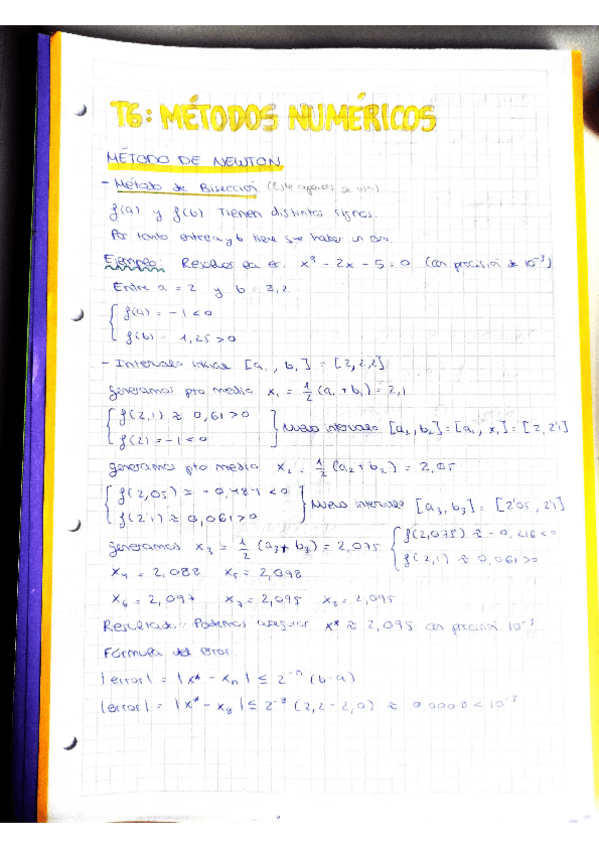 T6: MÉTODOS NUMÉRICOS
MÉTODO DE NEWTON
- Método de Bisección (Este apenas se usa)
f(a) y f(b) Tienen distintos signos.
Por tanto entre a y b tiene que haber un
Ejemplo: x³ - 2x - 5 = 0 (con precisión de 10⁻³)
Entre a = 2 y b = 2,2
{ f(a) = -1 < 0
{ f(b) = 1,25 > 0
- Intervalo inicial [a₁, b₁] = [2, 2,2]
generamos pto medio x₁ = 1/2 (a₁ + b₁) = 2,1
{ f(2,1) ≈ 0,61 > 0
{ f(2) = -1 < 0 } Nuevo intervalo [a₂, b₂] = [a₁, x₁] = [2, 2'1]
generamos pto medio x₂ = 1/2 (a₂ + b₂) = 2,05
{ f(2,05) ≈ -0,484 < 0
{ f(2'1) ≈ 0,061 > 0 } Nuevo intervalo [a₃, b₃] = [2'05, 2'1]
generamos x₃ = 1/2 (a₃ + b₃) = 2,075 { f(2,075) ≈ -0,216 < 0
{ f(2,1) ≈ 0,061 > 0
x₄ = 2,088 x₅ = 2,098
x₆ = 2,097 x₇ = 2,095 x₈ = 2,095
Resultado: Podemos asegurar x* ≈ 2,095 con precisión 10⁻³
Fórmula del error
|error| = |x* - xₙ| ≤ 2⁻ⁿ (b-a)
|error| = |x* - x₈| ≤ 2⁻⁸ (2,2 - 2,0) ≈ 0'0008 < 10⁻³